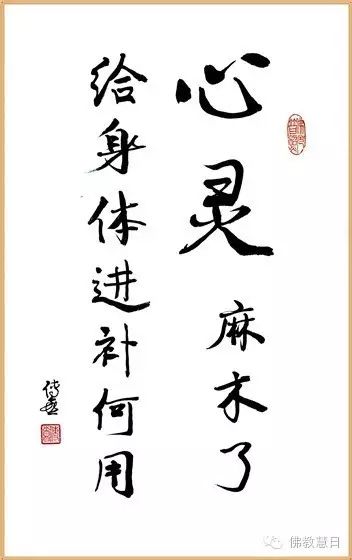 心灵麻木了
给身体进补何用
传喜
佛教慧日